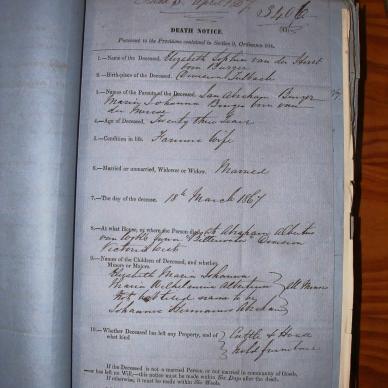 April 1867
3406
DEATH NOTICE.
Pursuant to the Provisions contained in Section 9, Ordinance 104.
1.—Name of the Deceased, Elizabeth Sophia van der Horst
born Burger
2.—Birth-place of the Deceased, Division Tulbagh
3.—Names of the Parents of the Deceased, Jan Abraham Burger
Maria Johanna Burger born van
der Merwe
4.—Age of Deceased, Twenty three Years
5.—Condition in life. Farmers Wife
6.—Married or unmarried, Widower or Widow. Married
7.—The day of the decease. 18th March 1867
8.—At what House, or where the Person died, Abraham Albertus
van Wyks farm Division
Victoria West
9.—Names of the Children of Deceased, and whether
Minors or Majors.
Elizabeth Maria Johanna
Maria Wilhelmina
Not baptised name to be
Johannes Hermanus Abraham
All Minors
10.—Whether Deceased has left any Property, and of
what kind
Cattle & House
hold furniture
If the Deceased is not a married Person, or not married in community of Goods,
or has left no Will,—this notice must be made within Six Days after the death.
If otherwise, it must be made within Six Weeks.